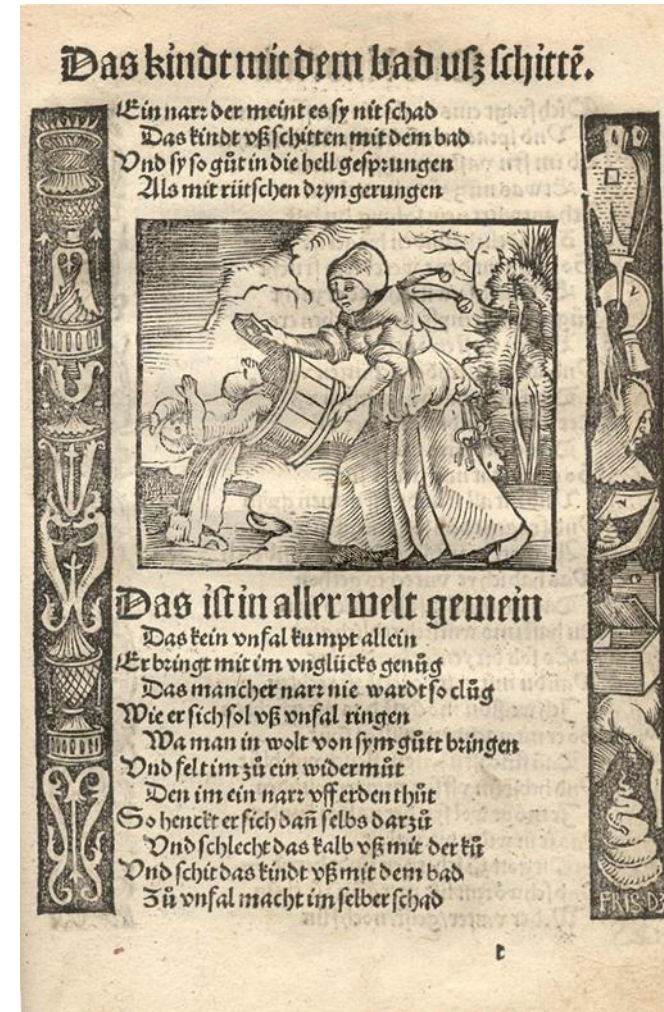 Das kindt mit dem bad vſz ſchittē.
Ein narr der meint es ſy nit ſchad
Das kindt vß ſchitten mit dem bad
Vnd ſy ſo gůt in die hell geſprungen
Als mit rütſchen dryn gerungen
Das iſt in aller welt gemein
Das kein vnfal kumpt allein
Er bringt mit im vnglücks genůg
Das mancher narr nie wardt ſo clůg
Wie er ſich ſol vß vnfal ringen
Wa man in wolt von ſym gůtt bringen
Vnd felt im zů ein widermůt
Den im ein narr vff erden thůt
So henckt er ſich dañ ſelbs darzů
Vnd ſchlecht das kalb vß mit der ků
Vnd ſchit das kindt vß mit dem bad
Zů vnfal macht im ſelber ſchad
FRIS D
t